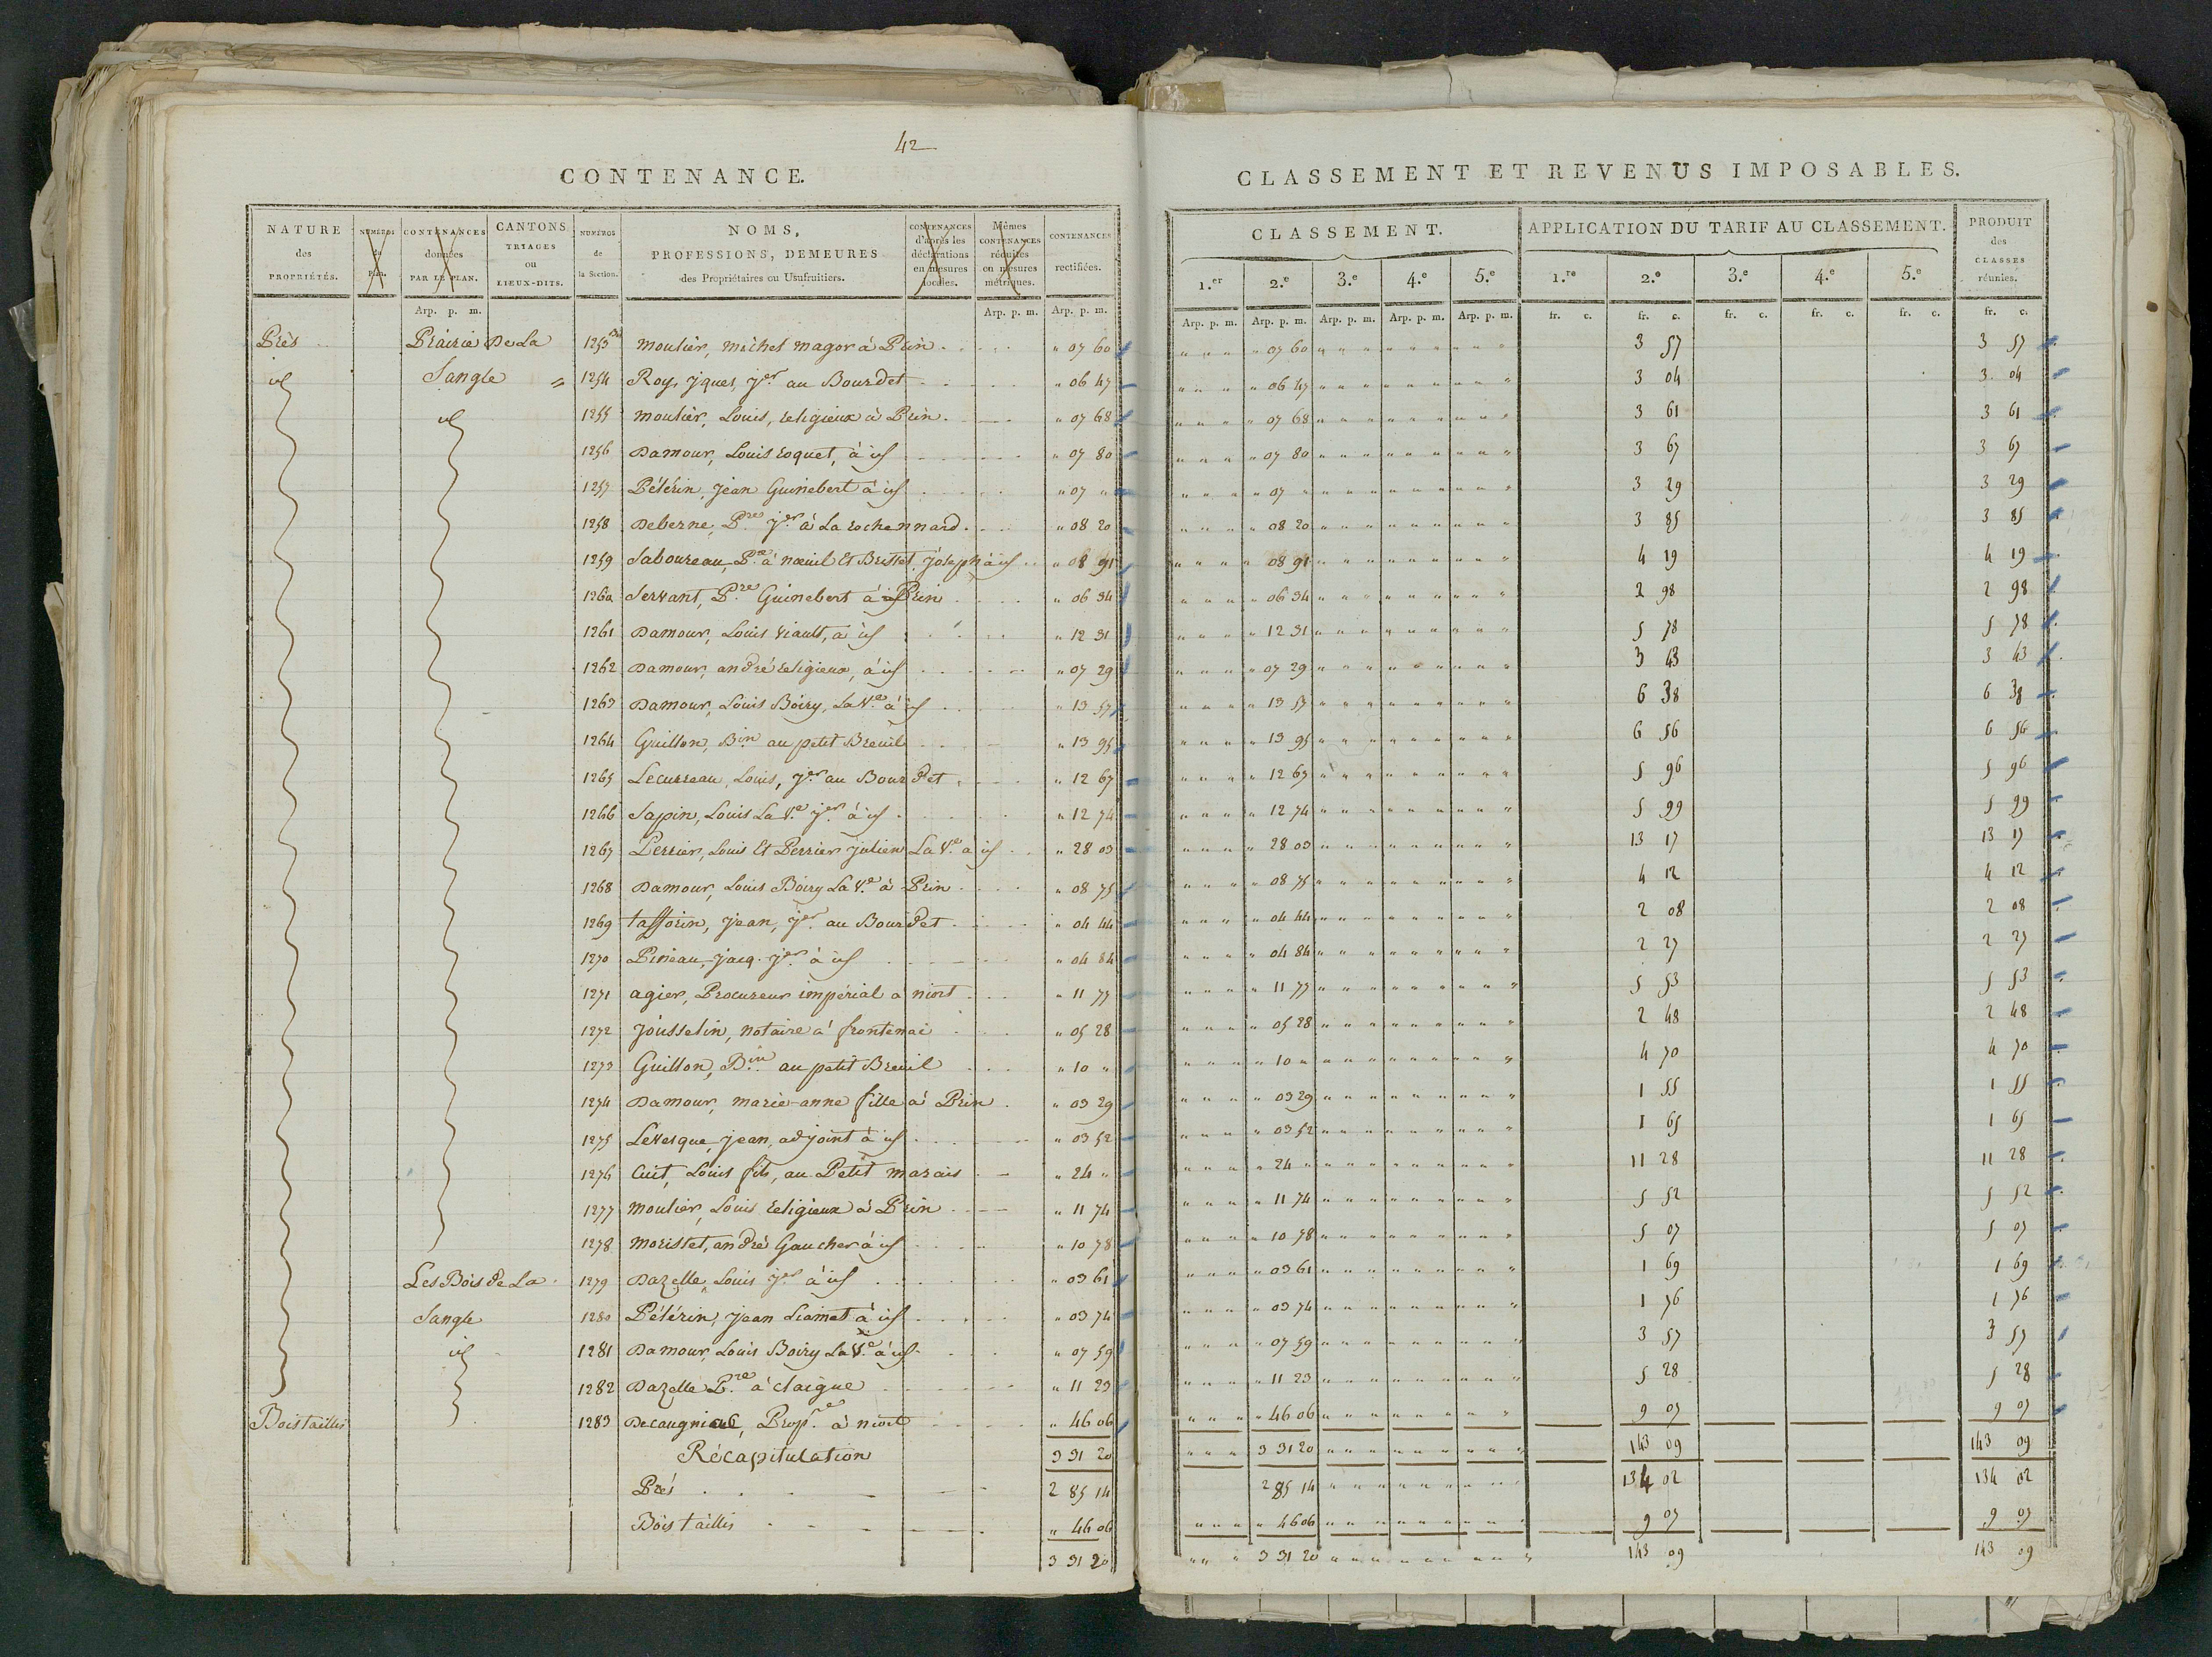 42
CONTENANCE.
NATURE des PROPRIÉTÉS. NUMÉROS du PLAN. CONTENANCES données PAR LE PLAN. CANTONS TRIAGES OU LIEUX-DITS. NUMÉROS de la Section. NOMS, PROFESSIONS, DEMEURES des Propriétaires ou Usufruitiers. CONTENANCES d'après les déclarations en mesures locales. Mêmes CONTENANCES réduites en mesures métriques. CONTENANCES rectifiées.
Arp. p. m. Arp. p. m. Arp. p. m.
Près Prairie De La 1253 moulier, michel magor à Prin " 07 60
id Sangle 1254 Roy, jques, jer au Bourdet " 06 47
id 1255 moulier, Louis, religieux à Prin " 07 68
1256 Damour, Louis roquet, à id " 07 80
1257 Pélérin, jean Guinebert à id " 07 "
1258 Deberne, Pre jer à La rochennard " 08 20
1259 Saboureau, Pre à noeuil Et Brisset, joseph à id " 08 91
1260 Servant, Pre Guinebert à Prin " 06 34
1261 Damour, Louis Viault, à id " 12 31
1262 Damour, andré religieux, à id " 07 29
1263 Damour, Louis Boiry, La Ve à id " 13 57
1264 Guillon, Bin au petit Breuil " 13 95
1265 Lecurreau, Louis, jer au Bourdet " 12 67
1266 Sapin, Louis La Ve jer à id " 12 74
1267 Perrier, Louis Et Perrier julien La Ve à id " 28 03
1268 Damour, Louis Boiry La Ve à Prin " 08 75
1269 tafforin, jean, jer au Bourdet " 04 44
1270 Pineau, jacq. jer à id " 04 84
1271 agier, Procureur impérial à niort " 11 77
1272 Jousselin, notaire à frontenai " 05 28
1273 Guillon, Bin au petit Breuil " 10 "
1274 Damour, marie-anne fille à Prin " 03 29
1275 Levesque, jean, adjoint à id " 03 52
1276 Cuit, Louis fils, au Petit marais " 24 "
1277 moulier, Louis religieux à Prin " 11 74
1278 morisset, andré Gaucher à id " 10 78
Les Bois de La 1279 Dazelle, Louis jer à id " 03 61
Sangle 1280 Pélérin, jean Liamet à id " 03 74
id 1281 Damour, Louis Boiry La Ve à id " 07 59
1282 Dazelle Pre à claigue " 11 23
Bois taillis 1283 Decaugniac, Propre à niort " 46 06
Récapitulation 3 31 20
Prés 2 85 14
Bois taillis " 46 06
3 31 20
CLASSEMENT ET REVENUS IMPOSABLES.
CLASSEMENT. APPLICATION DU TARIF AU CLASSEMENT. PRODUIT des CLASSES réunies.
1.er 2.e 3.e 4.e 5.e 1.re 2.e 3.e 4.e 5.e
Arp. p. m. Arp. p. m. Arp. p. m. Arp. p. m. Arp. p. m. fr. c. fr. c. fr. c. fr. c. fr. c. fr. c.
" 07 60 3 57 3 57
" 06 47 3 04 3 04
" 07 68 3 61 3 61
" 07 80 3 67 3 67
" 07 " 3 29 3 29
" 08 20 3 85 3 85
" 08 91 4 19 4 19
" 06 34 2 98 2 98
" 12 31 5 78 5 78
" 07 29 3 43 3 43
" 13 57 6 38 6 38
" 13 95 6 56 6 56
" 12 67 5 96 5 96
" 12 74 5 99 5 99
" 28 03 13 17 13 17
" 08 75 4 12 4 12
" 04 44 2 08 2 08
" 04 84 2 27 2 27
" 11 77 5 53 5 53
" 05 28 2 48 2 48
" 10 " 4 70 4 70
" 03 29 1 55 1 55
" 03 52 1 65 1 65
" 24 " 11 28 11 28
" 11 74 5 52 5 52
" 10 78 5 07 5 07
" 03 61 1 69 1 69
" 03 74 1 76 1 76
" 07 59 3 57 3 57
" 11 23 5 28 5 28
" 46 06 9 07 9 07
3 31 20 143 09 143 09
2 85 14 134 02 134 02
" 46 06 9 07 9 07
3 31 20 143 09 143 09